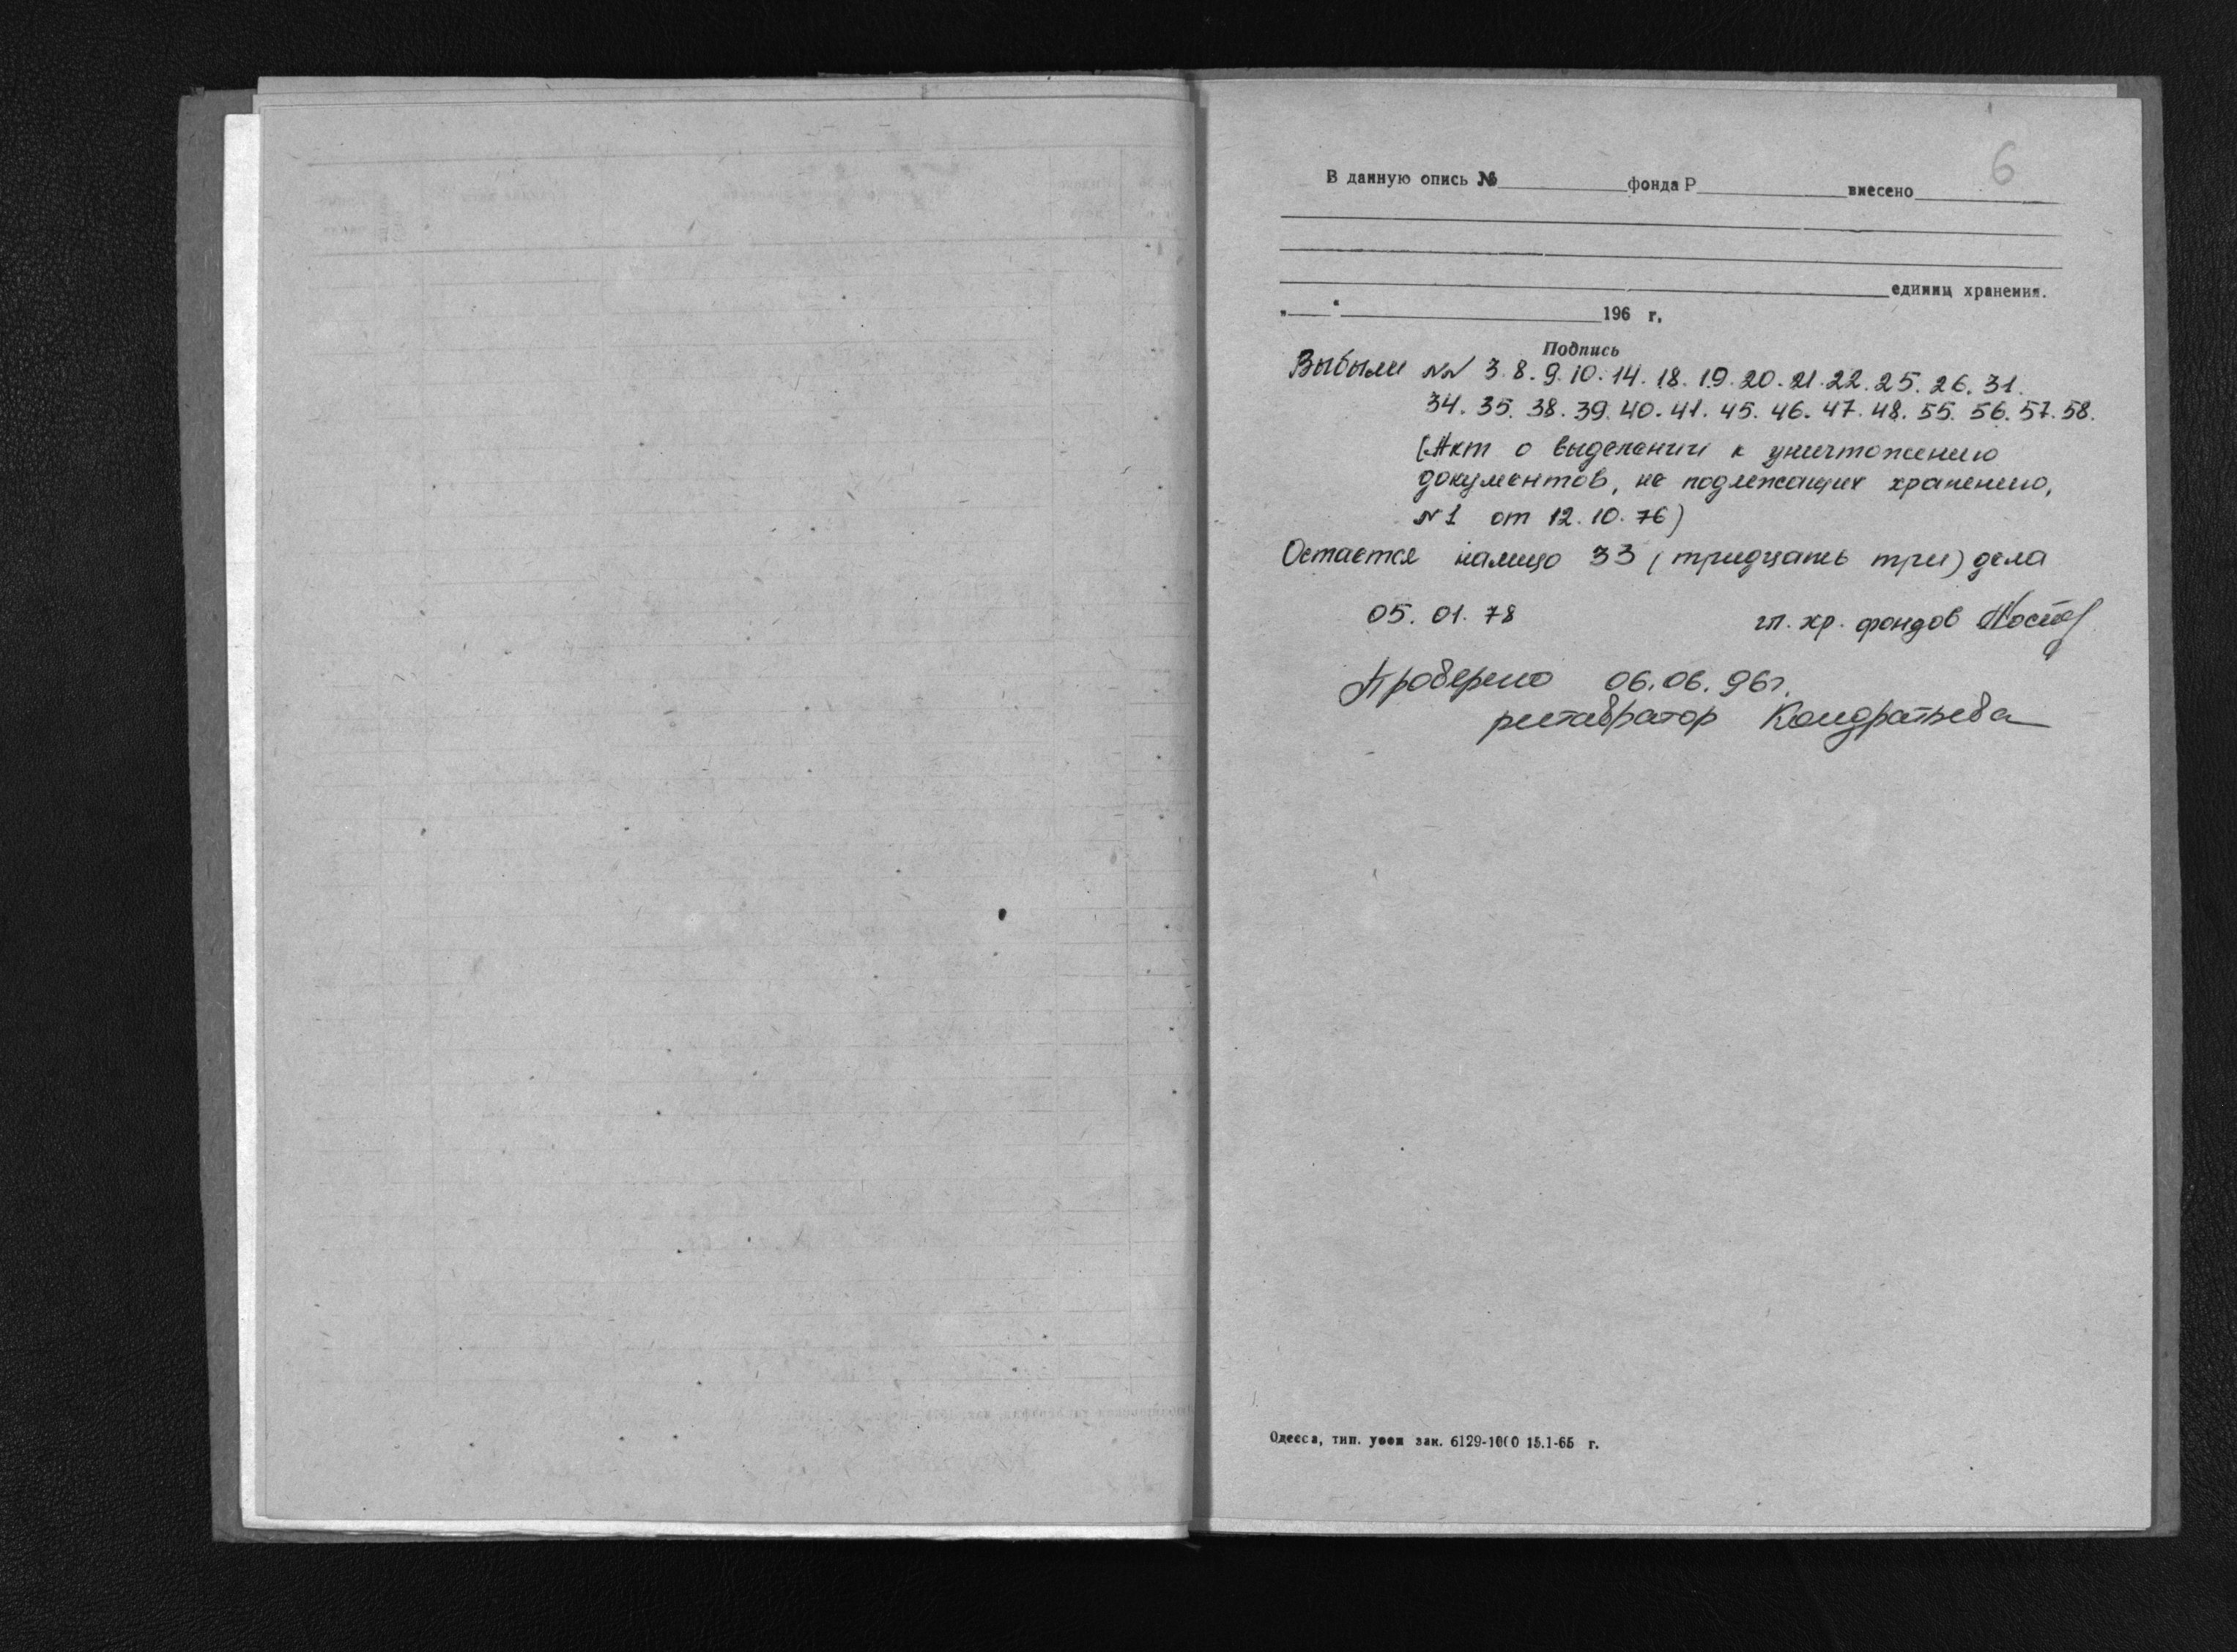 6
В данную опись № фонда Р внесено
единиц хранения.
" " 196 г.
Подпись
Выбыли №№ 3. 8. 9. 10. 14. 18. 19. 20. 21. 22. 25. 26. 31.
34. 35. 38. 39. 40. 41. 45. 46. 47. 48. 55. 56. 57. 58.
(Акт о выделении к уничтожению
документов, не подлежащих хранению,
№1 от 12. 10. 76)
Остается налицо 33 (тридцать три) дела
05. 01. 78 гл. хр. фондов
Проверено 06. 06. 96г.
реставратор Кондратьева
Одесса, тип. зак. 6129-1000 15.1-65 г.